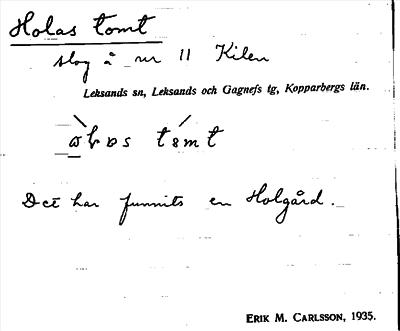 Holas tomt
slog å nr 11 Kilen
Leksands sn, Leksands och Gagnefs tg, Kopparbergs län.
Det har funnits en Holgård.
ERIK M. CARLSSON, 1935.